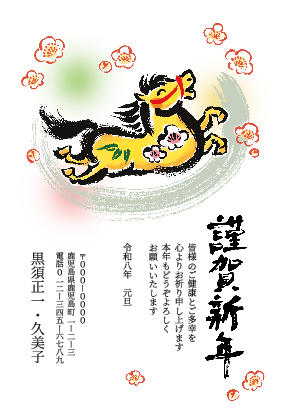 謹賀新年
皆様のご健康とご多幸を
心よりお祈り申し上げます
本年もどうぞよろしく
お願いいたします
令和八年　元旦
〒000-0000
鹿児島県鹿児島町一-二-三
電話0一二-三四五-六七八九
黒須正一・久美子